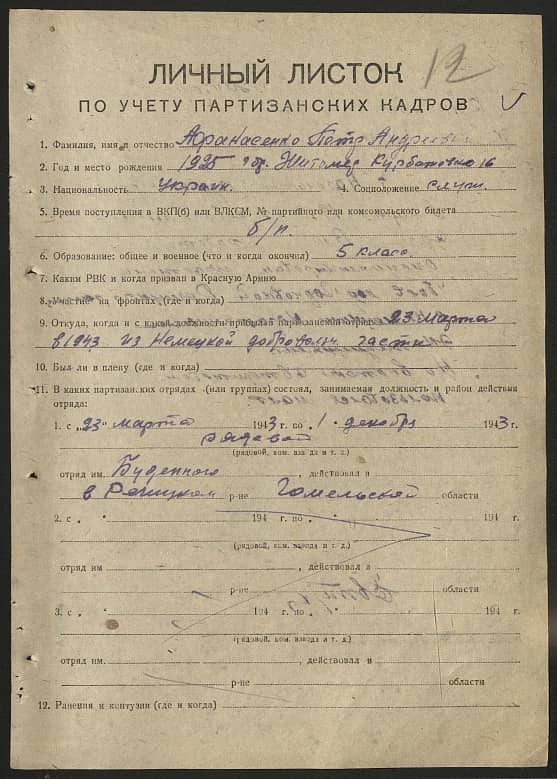 12
ЛИЧНЫЙ ЛИСТОК
ПО УЧЕТУ ПАРТИЗАНСКИХ КАДРОВ
1. Фамилия, имя и отчество Афанасенко Петр Андреевич
2. Год и место рождения 1925 гор. Житомер Курбатовка 16
3. Национальность Украин. 4. Соцположение служ.
5. Время поступления в ВКП(б) или ВЛКСМ, № партийного или комсомольского билета
б/п.
6. Образование: общее и военное (что и когда окончил) 5 класс.
7. Каким РВК и когда призван в Красную Армию
8. Участие на фронтах (где и когда)
9. Откуда, когда и с какой должности прибыл в партизанский отряд 23 марта
в 1943 из Немецкой доброволч. части
10. Был ли в плену (где и когда)
11. В каких партизанских отрядах (или группах) состоял, занимаемая должность и район действия
отряда:
1. с „23" марта 1943 г. по „1" декабря 1943 г.
рядовой
(рядовой, ком. взвода и т. д.)
отряд им. Буденного, действовал в
в Речицком р-не Гомельской области
2. с „ " 194 г. по „ " 194 г.
(рядовой, ком. взвода и т. д.)
отряд им, действовал в
р-не области
3. с „ " 194 г. по „ " 194 г.
(рядовой, ком. взвода и т. д.)
отряд им., действовал в
р-не области
12. Ранения и контузии (где и когда)